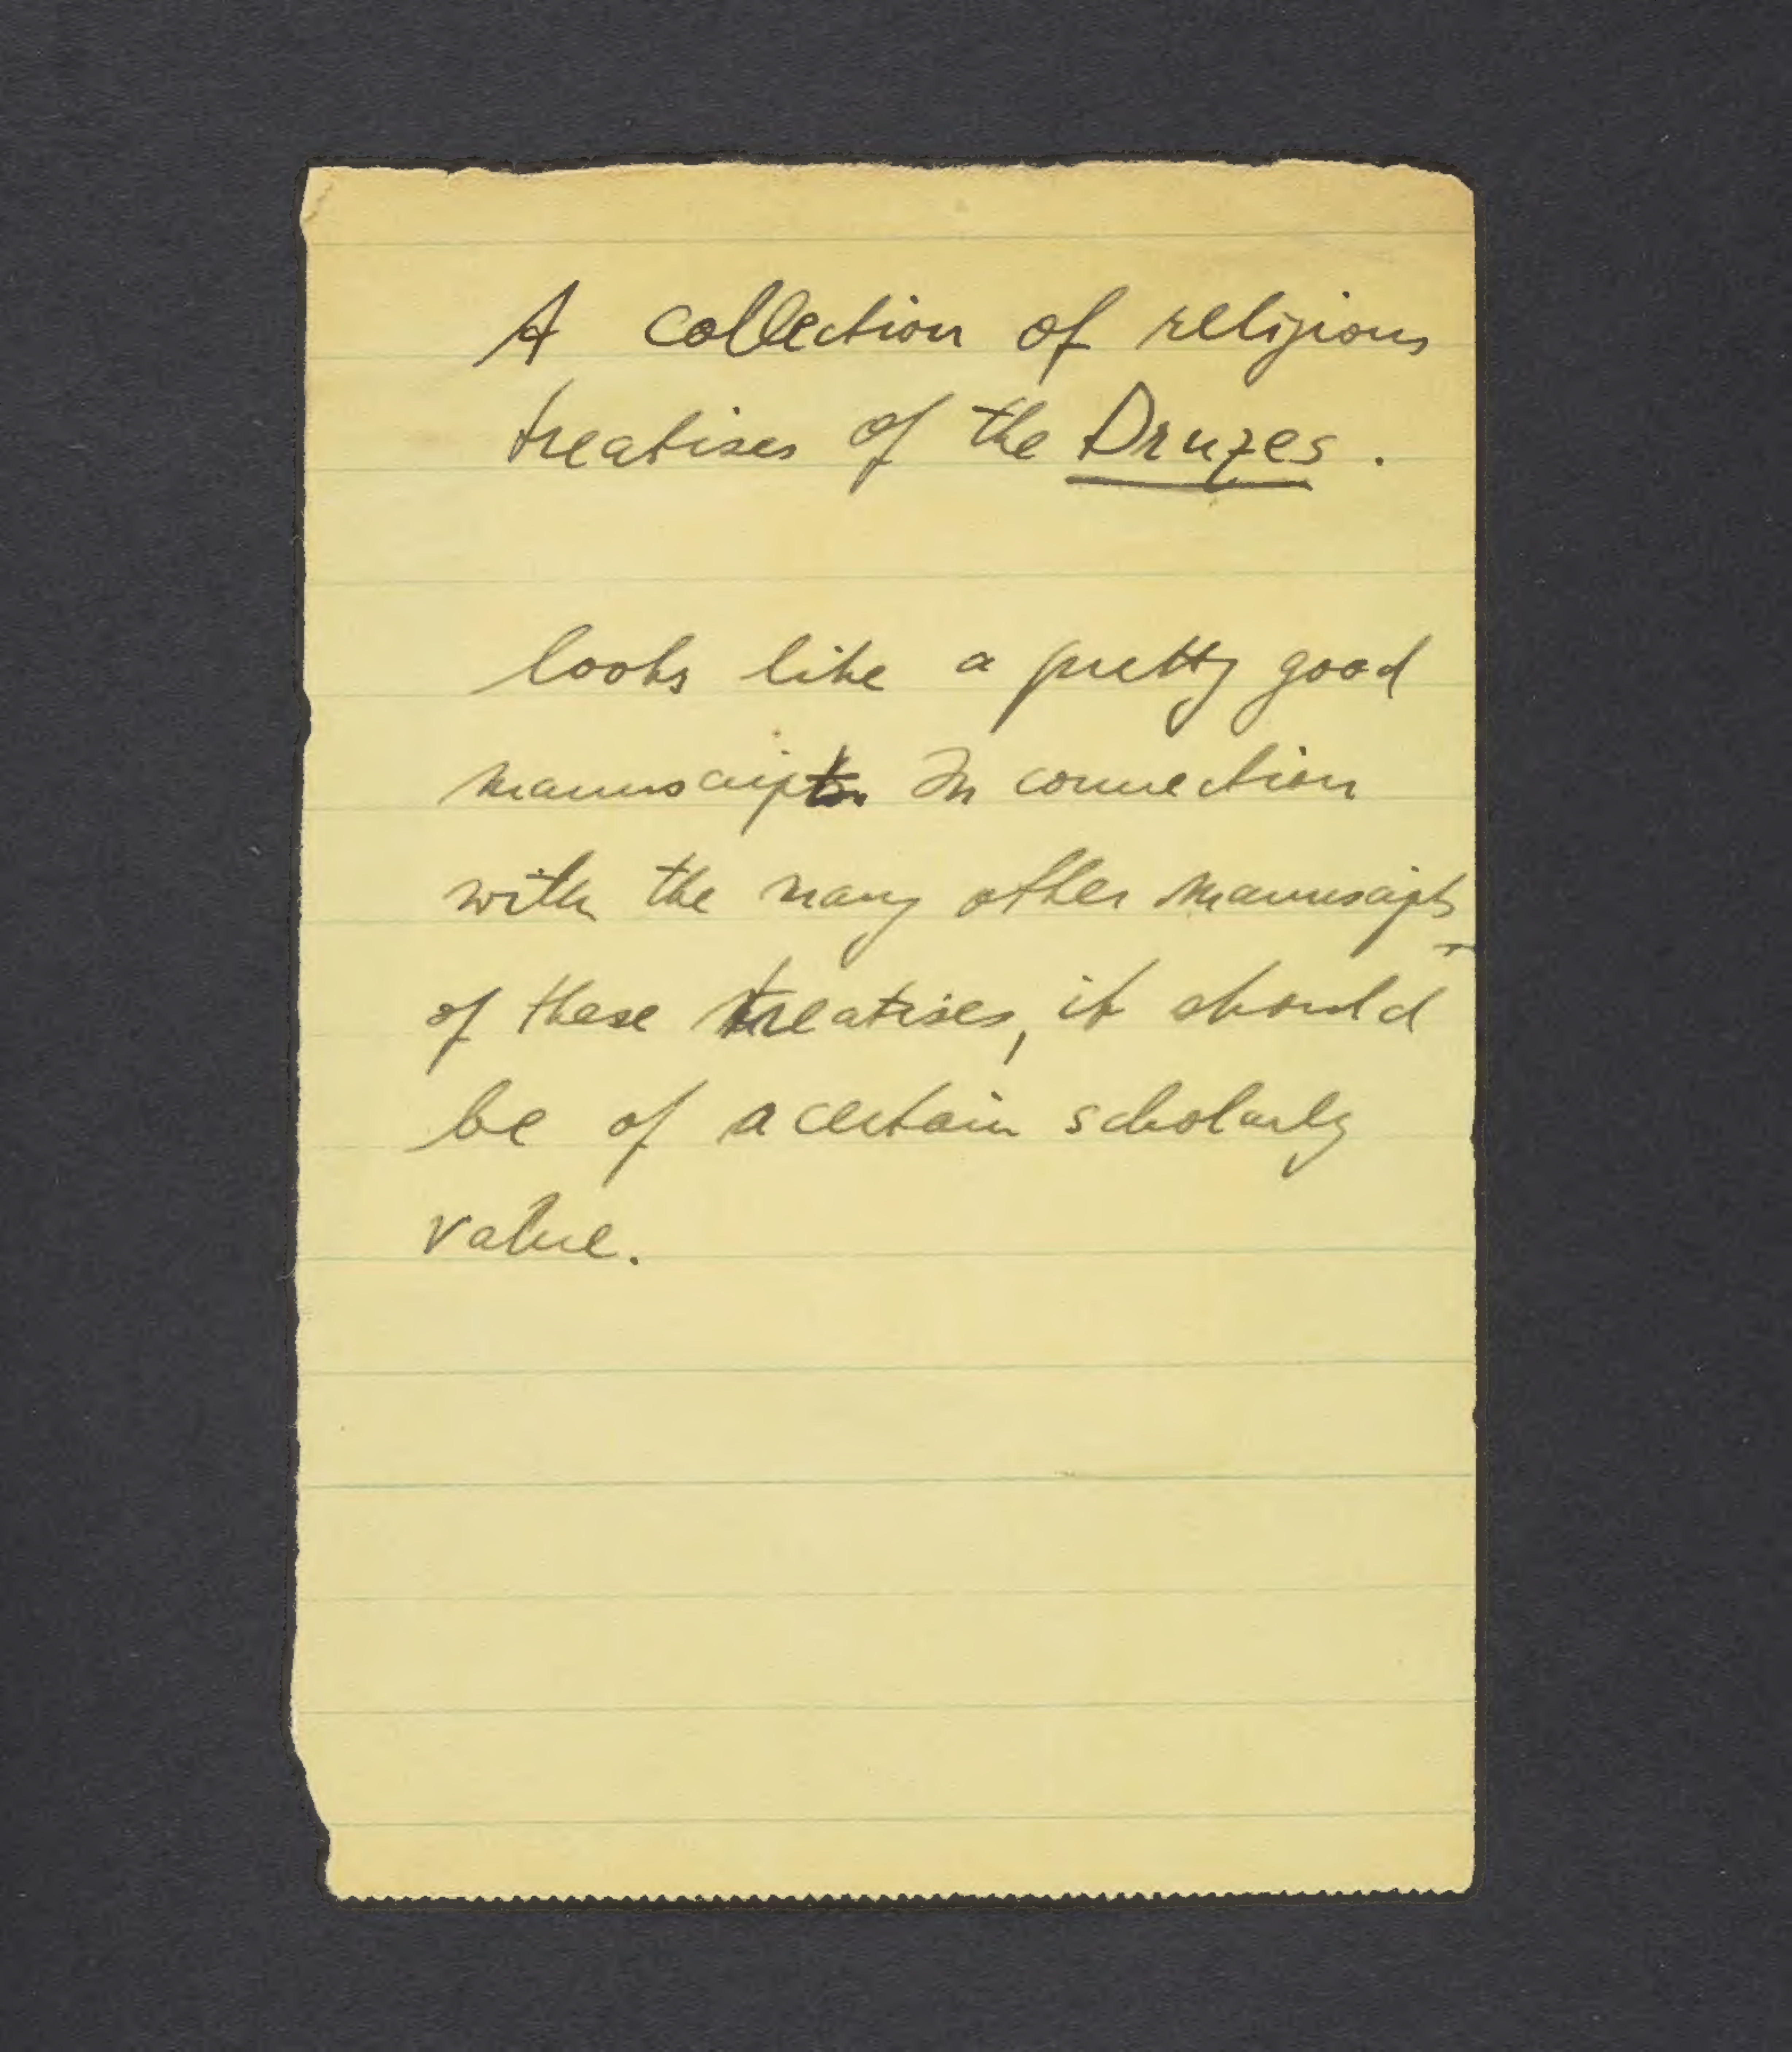 A collection of religious
treatises of the Druzes.
looks like a pretty good
manuscript. In connection
with the many other manuscripts
of these treatises, it should
be of a certain scholarly
value.